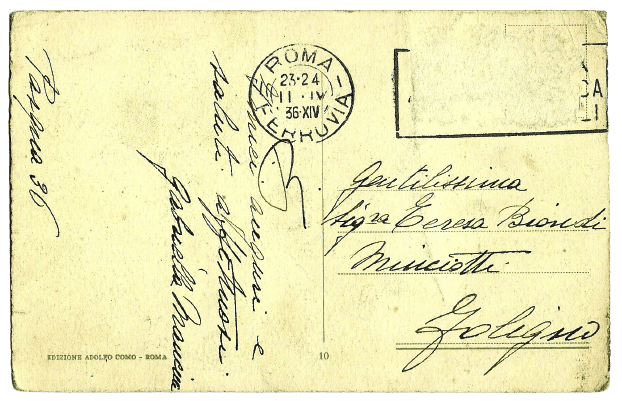 Pasqua 36
auguri e
saluti affettuosi
Gabriella
ROMA
23·24
11·IV
36·XIV
FERROVIA
Gentilissima
Sig.ra Teresa Biondi
Minciotti
Foligno
EDIZIONE ADOLFO COMO - ROMA
10